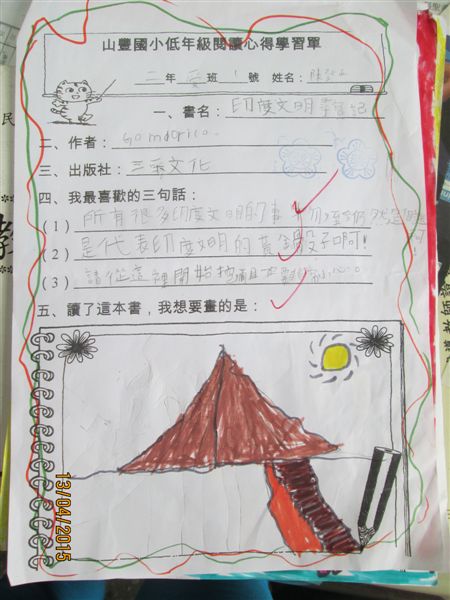 山豐國小低年級閱讀心得學習單
二年愛班1號 姓名：陳
一、書名：印度文明奪寶記
二、作者：Gomdori co.
三、出版社：三采文化
四、我最喜歡的三句話：
(1) 所有很多印度文明的事
(2) 是代表印度文明的黃銅骰子啊!
(3) 請從這裡開始挖
五、讀了這本書，我想要畫的是：
13/04/2015
民